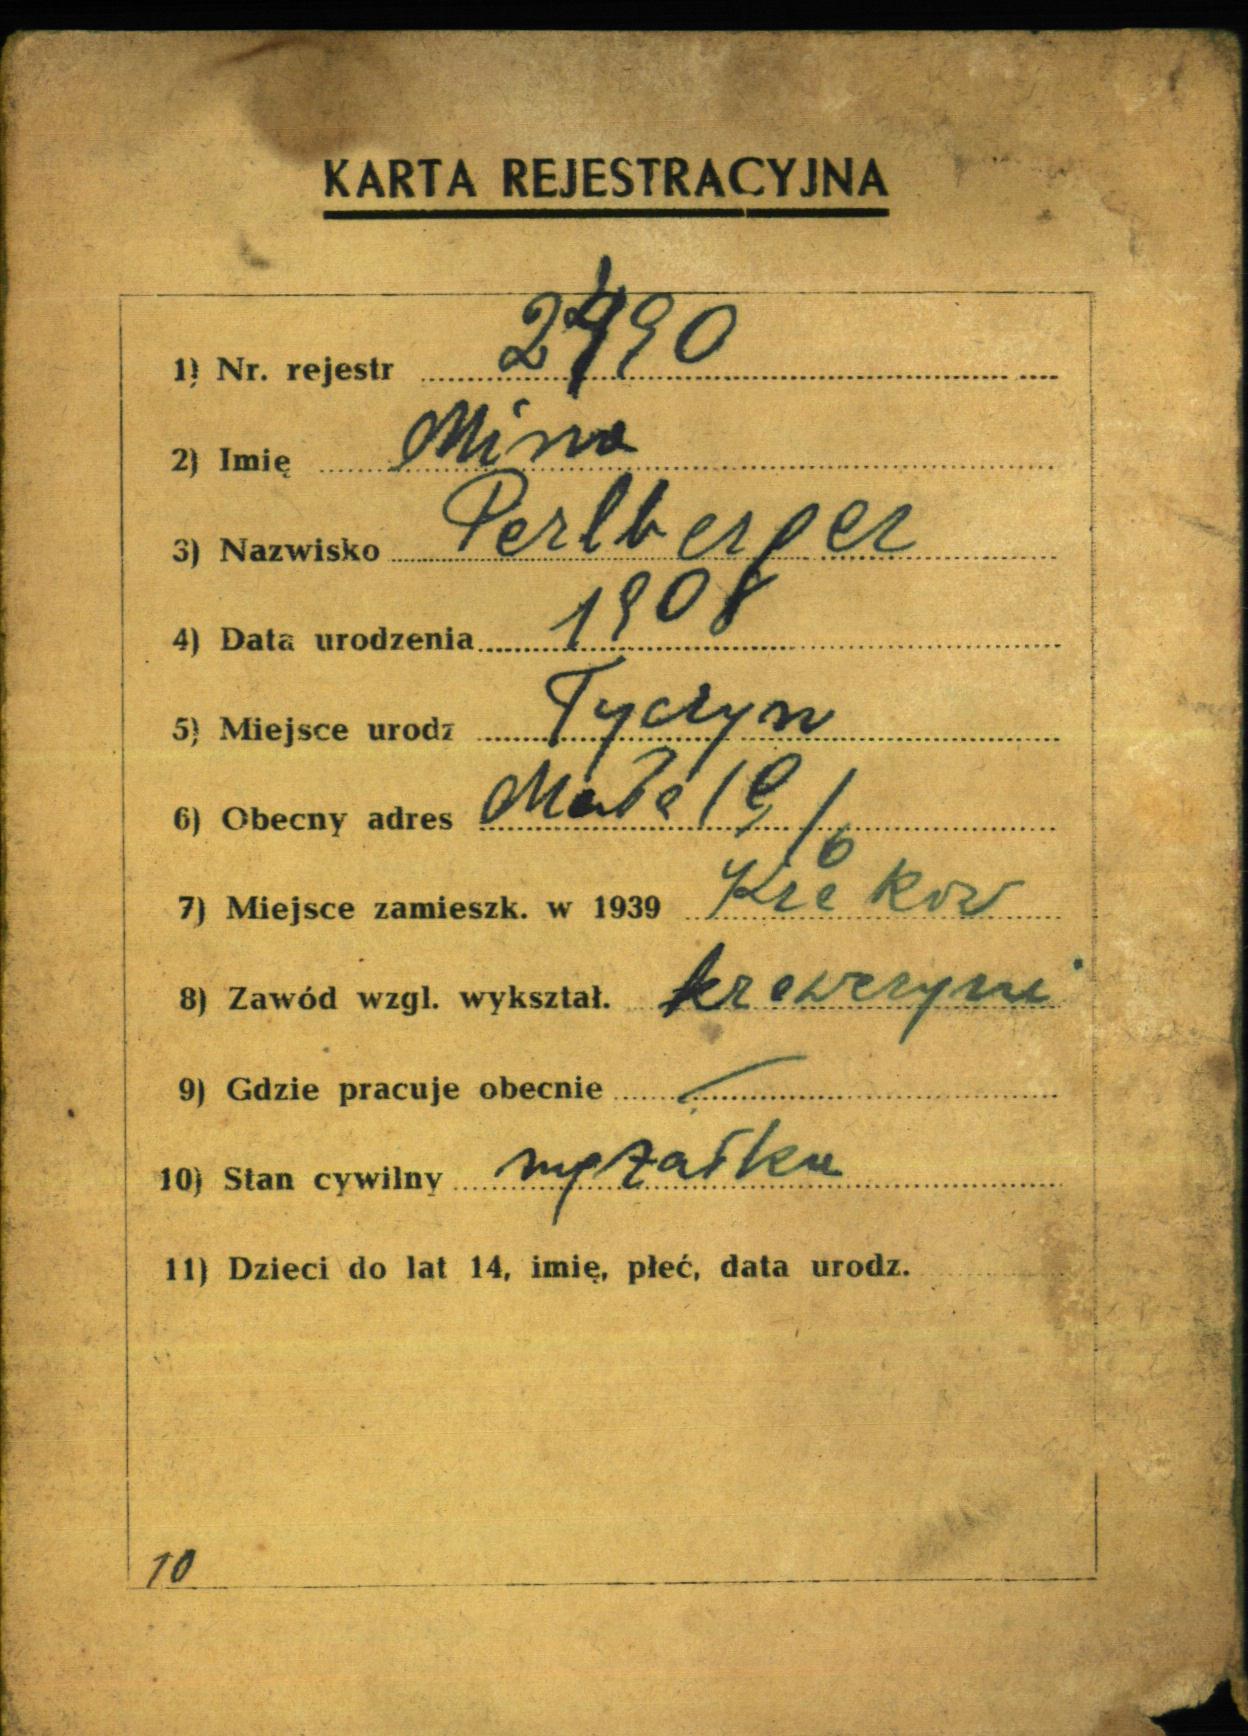 KARTA REJESTRACYJNA
1) Nr. rejestr 2490
2) Imię Mina
3) Nazwisko Perlberger
4) Data urodzenia 1908
5) Miejsce urodz Tyczyn
6) Obecny adres Mała 19/6
7) Miejsce zamieszk. w 1939 Krakow
8) Zawód wzgl. wykształ. krawczyni
9) Gdzie pracuje obecnie —
10) Stan cywilny mężatka
11) Dzieci do lat 14, imię, płeć, data urodz.
10